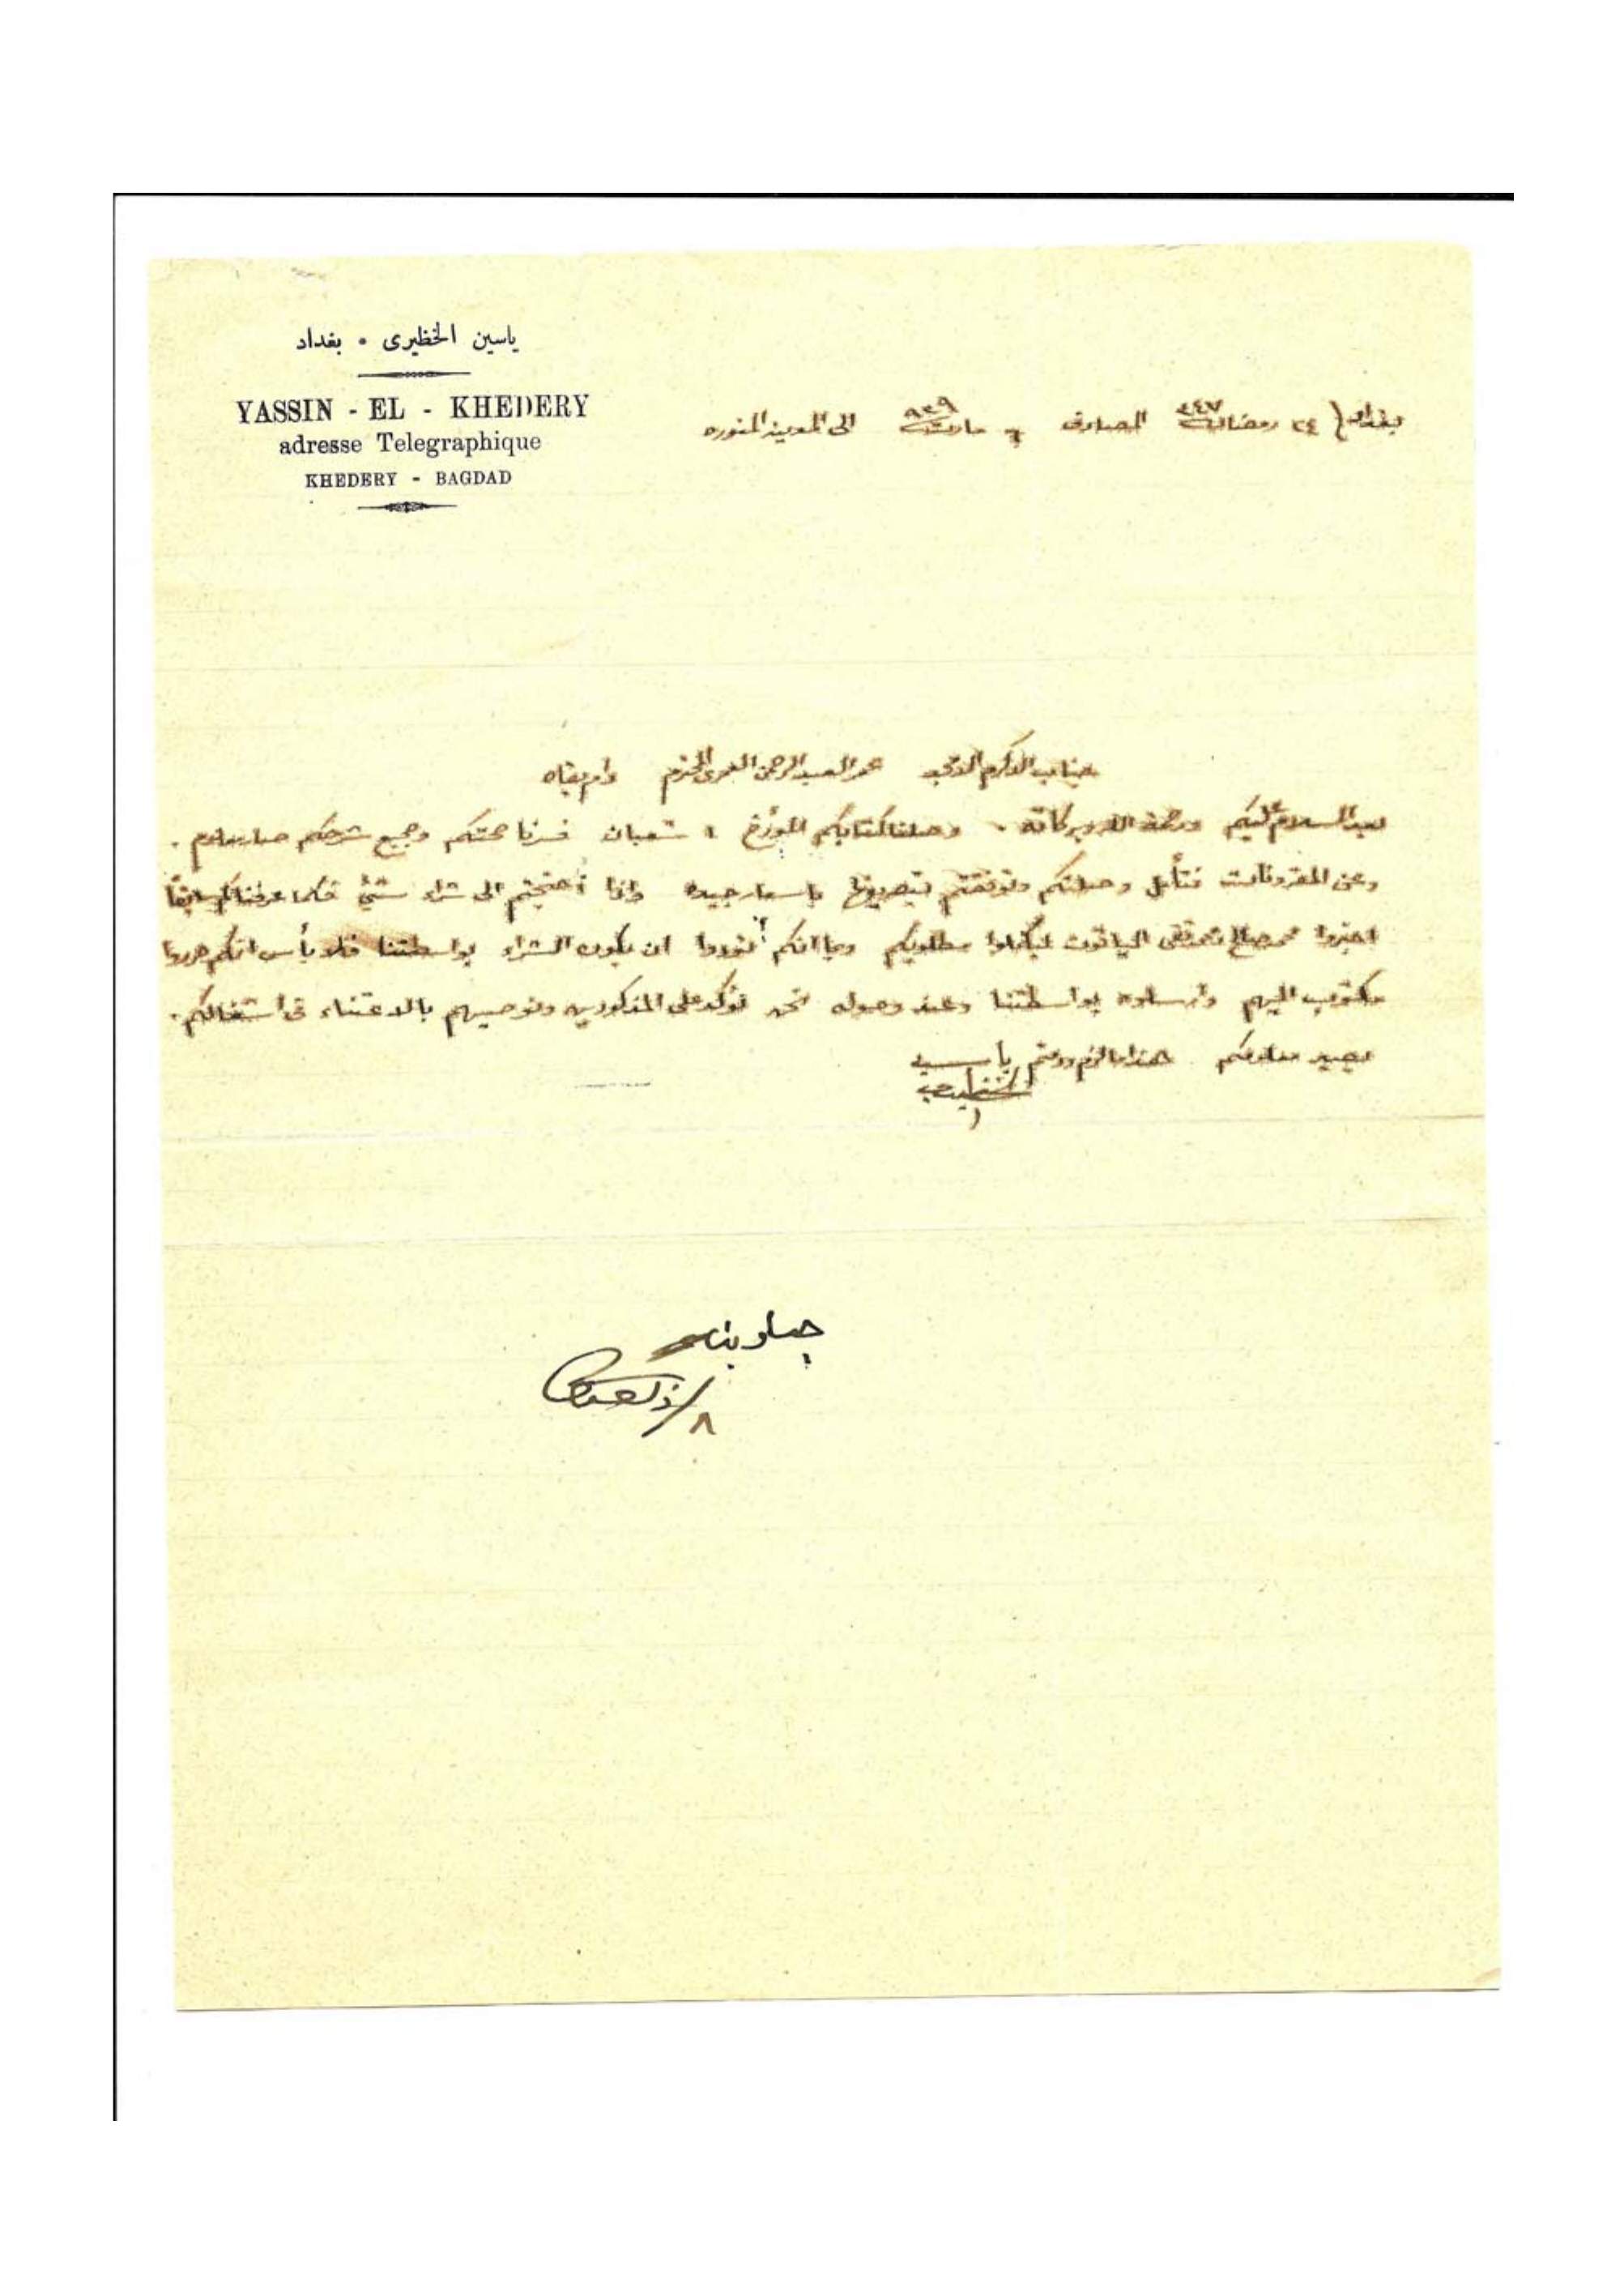 ياسين الخظيرى • بغداد
YASSIN - EL - KHEDERY
adresse Telegraphique
KHEDERY - BAGDAD
بغداد ( ٢٤ رمضان ٣٤٧ المصادف ٦ مارت ٩٢٩ الى المدينه المنوره
جناب المكرم عمر العبد الرحمن العمرى المحترم دام بقاه
بعد السلام عليكم ورحمة الله وبركاته . وصلنا كتابكم المؤرخ ١ شعبان فسرنا صحتكم وجميع شرحكم صار معلوم .
وعن المفروشات نتأمل وصلتكم وتوفقتم بتصريفها باسعار جيده واذا أحتجتم الى شراء شيئ فكما عرفناكم سابقاً
اخبروا محمد صالح الياقوت ليكملوا مطلوبكم وبما انكم تودوا ان يكون الشراء بواسطتنا فلا بأس انكم حرروا
مكتوب اليهم وأرسلوه بواسطتنا وعند وصوله نحن نؤكد على المذكورين ونوصيهم بالاعتناء فى أشغالكم .
يصير معلومكم هذا ما لزم ودمتم ياسين
الخظيرى
٨/